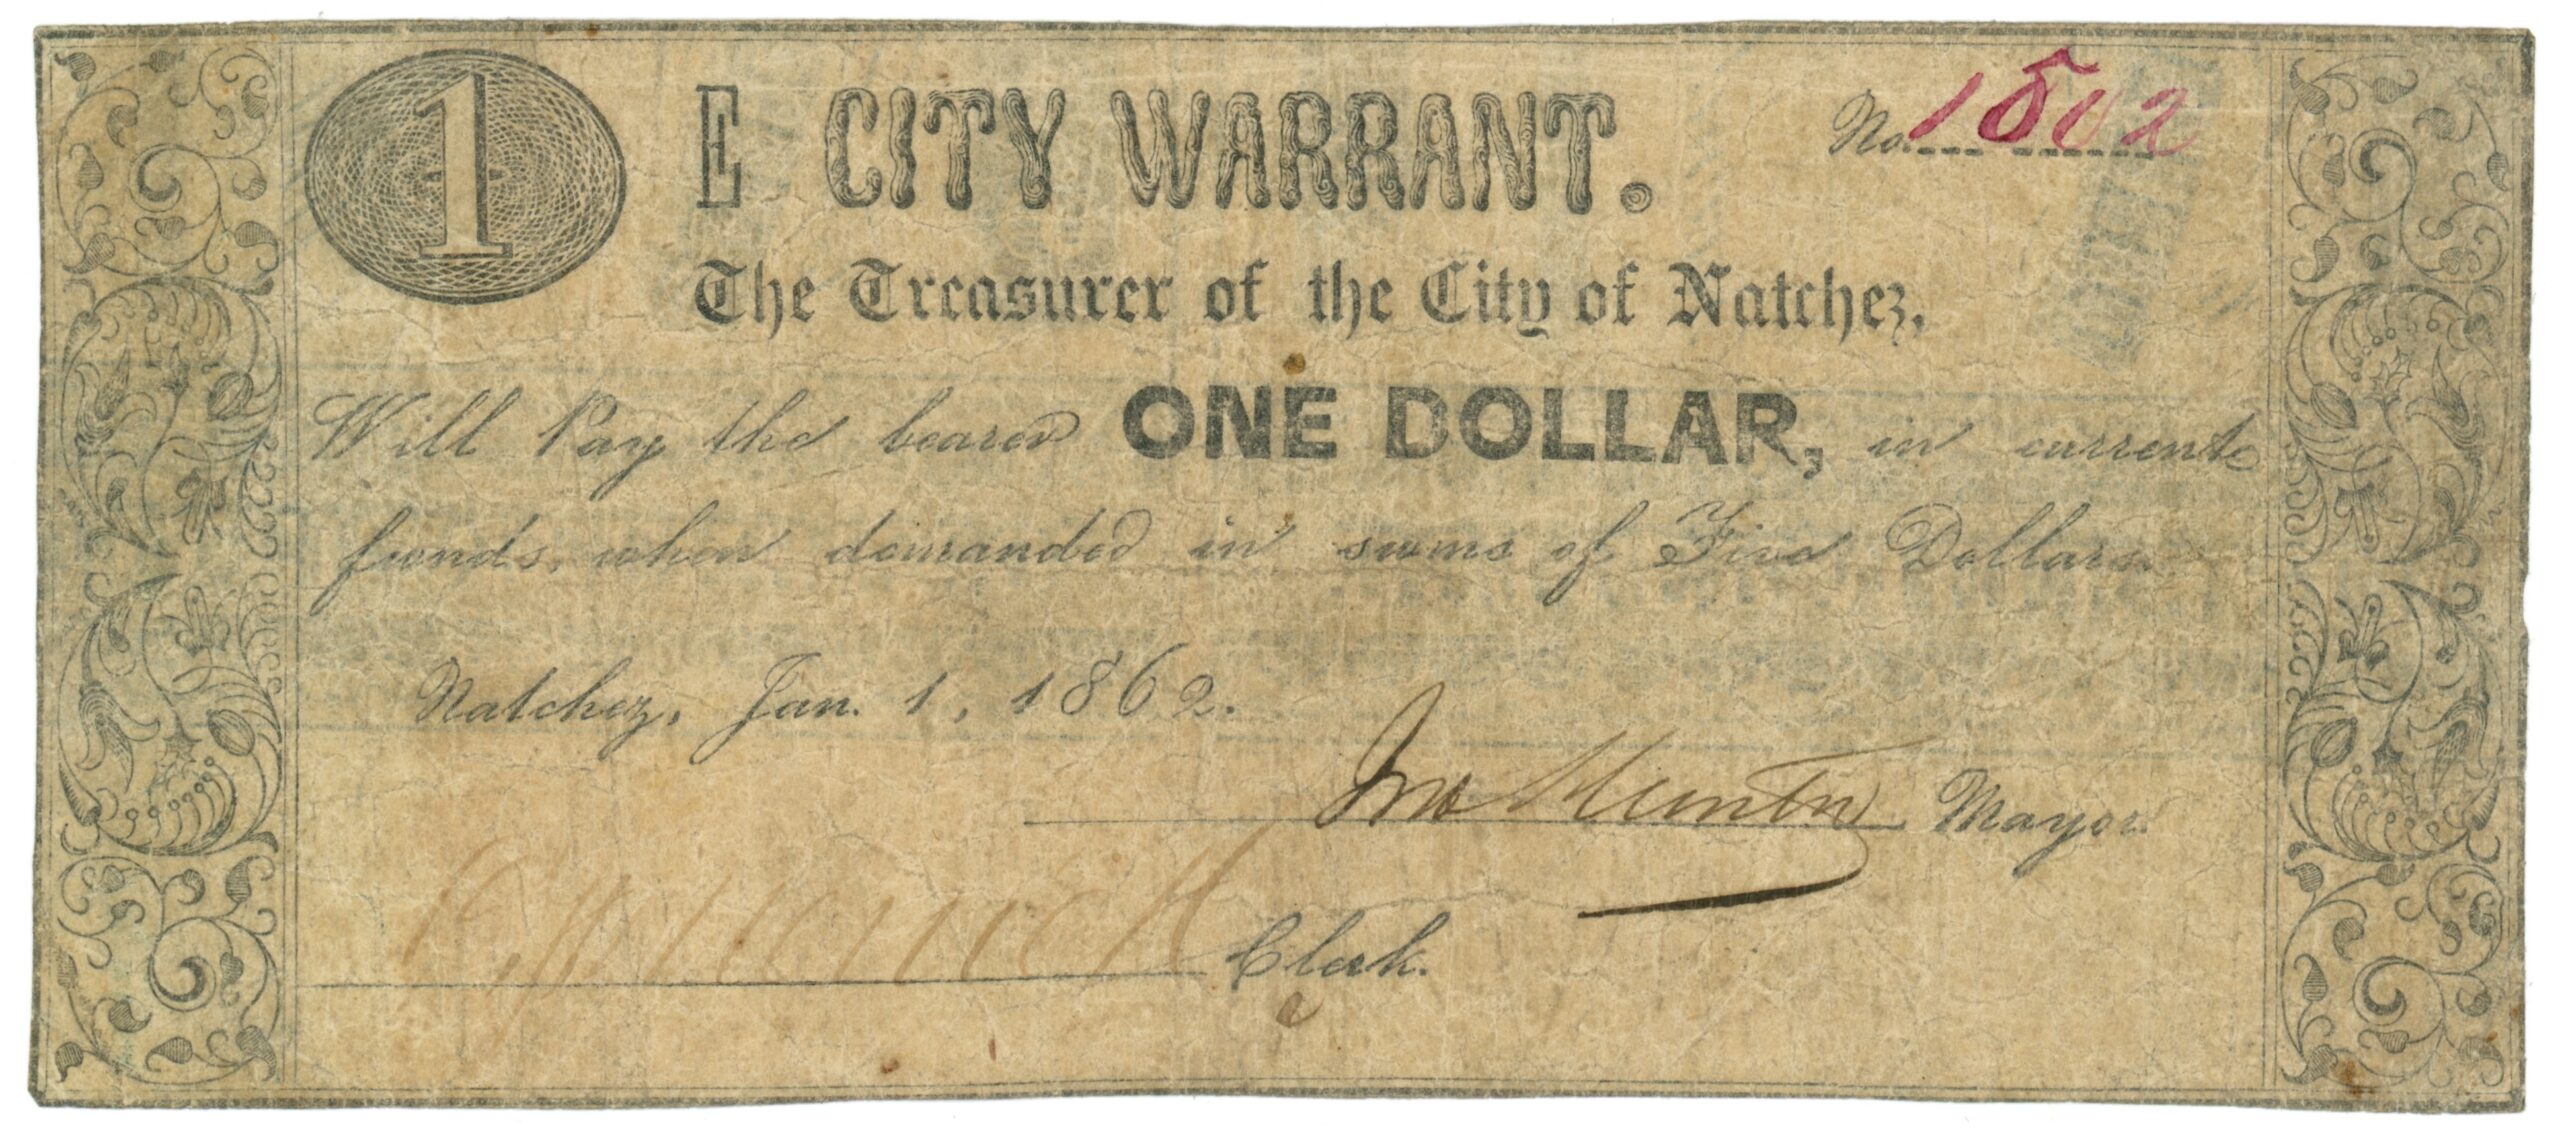 1
E CITY WARRANT.
No. 1802
The Treasurer of the City of Natchez,
Will Pay the bearer ONE DOLLAR, in current
funds, when demanded in sums of Five Dollars
Natchez, Jan. 1, 1862.
Jno Hunter Mayor.
Clerk.